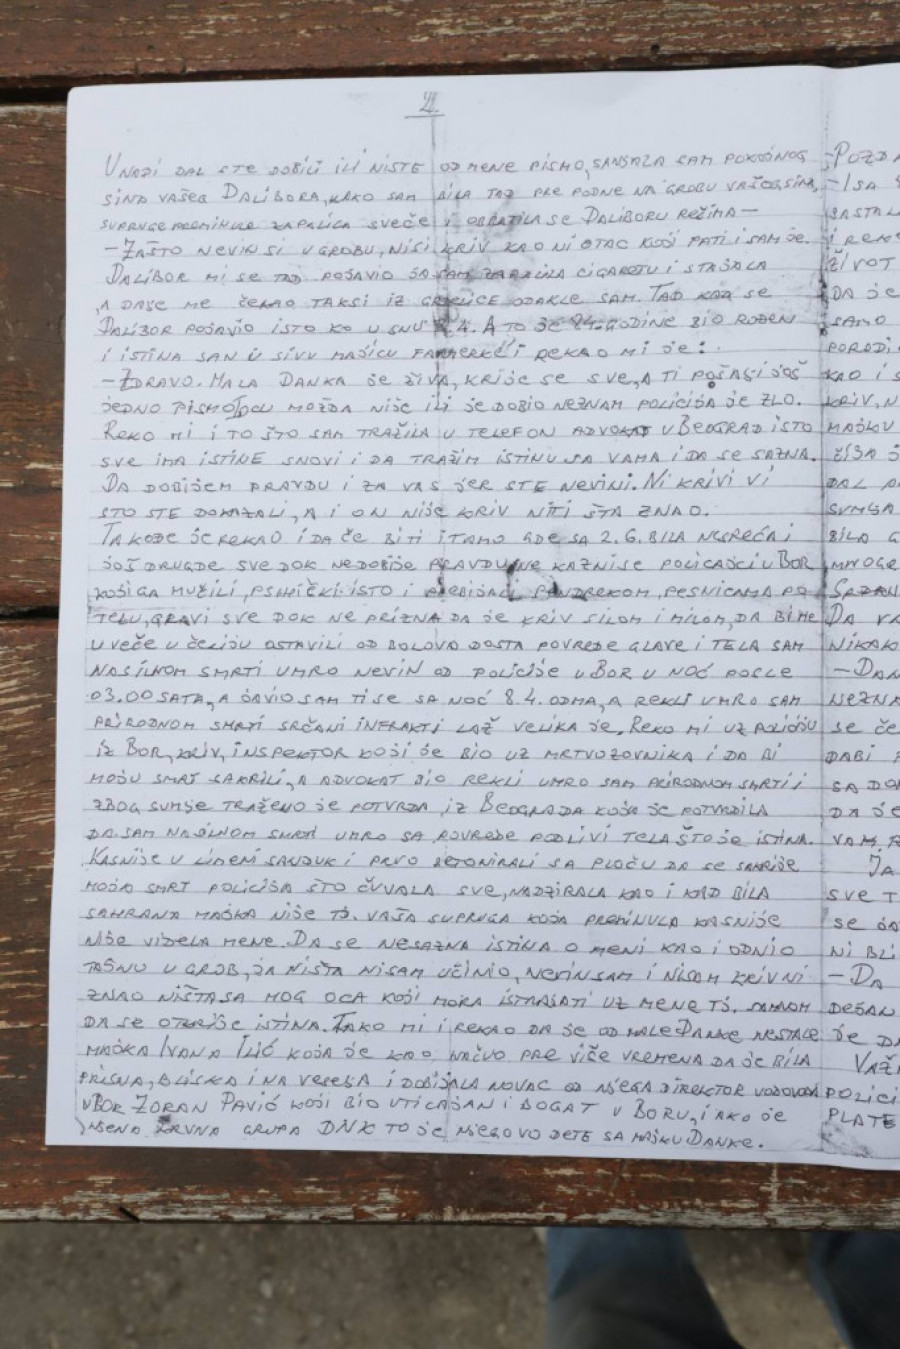 2.
U NADI DAL STE DOBILI ILI NISTE OD MENE PISMO, SANJALA SAM POKOJNOG
SINA VAŠEG DALIBORA, KAKO SAM BILA TAD PRE PODNE NA GROBU VAŠEG SINA,
SUPRUGE PREMINULE ZAPALILA SVEĆE I OBRATILA SE DALIBORU REČIMA —
- ZAŠTO NEVIN SI U GROBU, NISI KRIV KAO NI OTAC KOJI PATI I SAM JE.
DALIBOR MI SE TAD POJAVIO JA SAM ZAPALILA CIGARETU I STAJALA
, A DASE ME ČEKAO TAKSI IZ ODAKLE SAM. TAD KAD SE
DALIBOR POJAVIO ISTO KO U SNU 8.4. A TO JE 84. GODINE BIO ROĐEN
I ISTINA SAN U SIVU MAJICU FARMERKE I REKAO MI JE:
- ZDRAVO. MALA DANKA JE ŽIVA, KRIJE SE SVE, A TI POŠALJI JOŠ
JEDNO PISMO OCU MOŽDA NIJE ILI JE DOBIO NEZNAM POLICIJA JE ZLO.
REKO MI I TO ŠTO SAM TRAŽILA U TELEFON ADVOKAT U BEOGRAD ISTO
SVE IMA ISTINE SNOVI I DA TRAŽIM ISTINU SA VAMA I DA SE SAZNA.
DA DOBIJEM PRAVDU I ZA VAS JER STE NEVINI. NI KRIVI VI
STO STE DOKAZALI, A I ON NIJE KRIV NITI ŠTA ZNAO.
TAKOĐE JE REKAO I DA ĆE BITI I TAMO GDE SA 2.6. BILA NESREĆA I
JOŠ DRUGDE SVE DOK NEDOBIJE PRAVDU, NE KAZNI SE POLICAJCI U BOR
KOJI GA MUČILI, PSIHIČKI ISTO I PREBIJALI PENDREKOM, PESNICAMA PO
TELU, GLAVI SVE DOK NE PRIZNA DA JE KRIV SILOM I MILOM, DA BI ME
U VEČE U ĆELIJU OSTAVILI OD BOLOVA DOSTA POVREDE GLAVE I TELA SAM
NASILNOM SMRTI UMRO NEVIN OD POLICIJE U BOR U NOĆ POSLE
03.00 SATA, A JAVIO SAM TI SE SA NOĆ 8.4. ODMA, A REKLI UMRO SAM
PRIRODNOM SMRTI SRČANI INFRAKTI LAŽ VELIKA JE. REKO MI UZ POLICIJU
IZ BOR, KRIV, INSPEKTOR KOJI JE BIO UZ MRTVOZOVNIKA I DA BI
MOJU SMRT SAKRILI, A ADVOKAT BIO REKLI UMRO SAM PRIRODNOM SMRTI I
ZBOG SUMJE TRAŽENO JE POTVRDA IZ BEOGRADA KOJA JE POTVRDILA
DA SAM NASILNOM SMRTI UMRO SA POVREDE PODLIVI TELA ŠTO JE ISTINA.
KASNIJE U LIMENI SANDUK I PRVO BETONIRALI SA PLOČU DA SE SAKRIJE
MOJA SMRT POLICIJA ŠTO ČUVALA SVE, NADZIRALA KAO I KAD BILA
SAHRANA MAJKA NIJE TJ. VAŠA SUPRUGA KOJA PREMINULA KASNIJE
NIJE VIDELA MENE. DA SE NESAZNA ISTINA O MENI KAO I ODNIO
TAJNU U GROB, JA NIŠTA NISAM UČINIO, NEVIN SAM I NISAM KRIV NI
ZNAO NIŠTA SA MOG OCA KOJI MORA ISTRAJATI UZ MENE TJ. SAMNOM
DA SE OTKRIJE ISTINA. TAKO MI I REKAO DA JE OD MALE DANKE NESTALE
MAJKA IVANA ILIĆ KOJA JE KAO NAĆVO PRE VIŠE VREMENA DA JE BILA
PRISNA, BLISKA I NA VEZI JA I DOBIJALA NOVAC OD NJEGA DIREKTOR VODOVODA
U BOR ZORAN PAVIĆ KOJI BIO UTICAJAN I BOGAT U BORU, I AKO JE
NJENA KRVNA GRUPA DNK TO JE NJEGOVO DETE SA MAJKU DANKE.
- POZDR
- I SA
SASTAL
I REK
ŽIVOT
DA JE
SAMO
PORODI
KAO I S
KRIV, N
MAJKU
DAL
SUMJA
BILA
MNOGE
DA VA
NIKAK
- DAN
NEZNA
SE ČE
DABI
SA DO
DA JE
VAM
JA
SVE T
SE
NI BLI
- DA
DEŠAV
JE DA
VAŽ
POLICI
PLATE